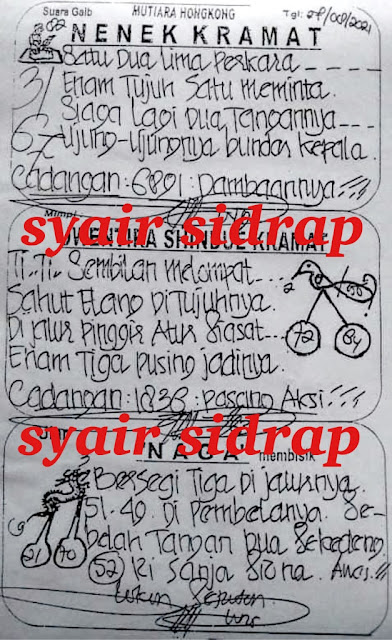 Suara Gaib MUTIARA HONGKONG Tgl: 27/08/2021
NENEK KRAMAT
Satu Dua Lima Perkara
Enam Tujuh Satu meminta.
Siaga Lagi Dua Tangannya
Ujung-Ujungnya bundar kepala.
Cadangan: 6891: Dambaannya
syair sidrap
Mimpi
KRAMAT
Ti..Ti.. Sembilan melompat
Sahut Elang Di Tujuhnya.
Di jalur Pinggir Atur Siasat
Enam Tiga pusing jadinya.
72 84
Cadangan: 1836: pasang Aksi
syair sidrap
NAGA membisik
Bersegi Tiga Di jalurnya.
51. 49. Di Pembelanya. Se-
belah Tangan Dua
21 70
52 Ki